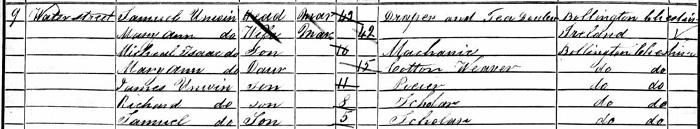 9 Water street Samuel Unwin Head Mar 43 Draper and Tea Dealer Bollington Cheshire
Mary Ann do Wife Mar 42 Ireland
Michael Isaac do Son 16 Mechanic Bollington Cheshire
Mary Ann do Daur 15 Cotton Weaver do do
James Unwin Son 11 Piecer do do
Richard do Son 8 Scholar do do
Samuel do Son 5 Scholar do do